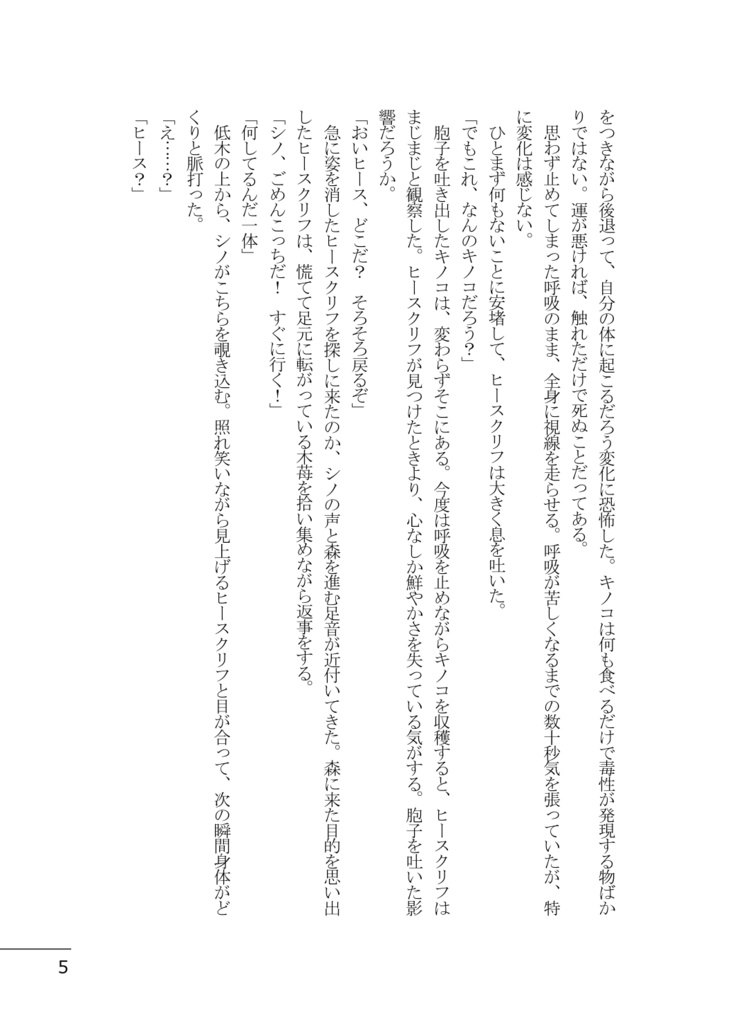 をつきながら後退って、自分の体に起こるだろう変化に恐怖した。キノコは何も食べるだけで毒性が発現する物ばか
りではない。運が悪ければ、触れただけで死ぬことだってある。
　思わず止めてしまった呼吸のまま、全身に視線を走らせる。呼吸が苦しくなるまでの数十秒気を張っていたが、特
に変化は感じない。
　ひとまず何もないことに安堵して、ヒースクリフは大きく息を吐いた。
「でもこれ、なんのキノコだろう？」
　胞子を吐き出したキノコは、変わらずそこにある。今度は呼吸を止めながらキノコを収穫すると、ヒースクリフは
まじまじと観察した。ヒースクリフが見つけたときより、心なしか鮮やかさを失っている気がする。胞子を吐いた影
響だろうか。
「おいヒース、どこだ？　そろそろ戻るぞ」
　急に姿を消したヒースクリフを探しに来たのか、シノの声と森を進む足音が近付いてきた。森に来た目的を思い出
したヒースクリフは、慌てて足元に転がっている木苺を拾い集めながら返事をする。
「シノ、ごめんこっちだ！　すぐに行く！」
「何してるんだ一体」
　低木の上から、シノがこちらを覗き込む。照れ笑いながら見上げるヒースクリフと目が合って、次の瞬間身体がど
くりと脈打った。
「え……？」
「ヒース？」
5